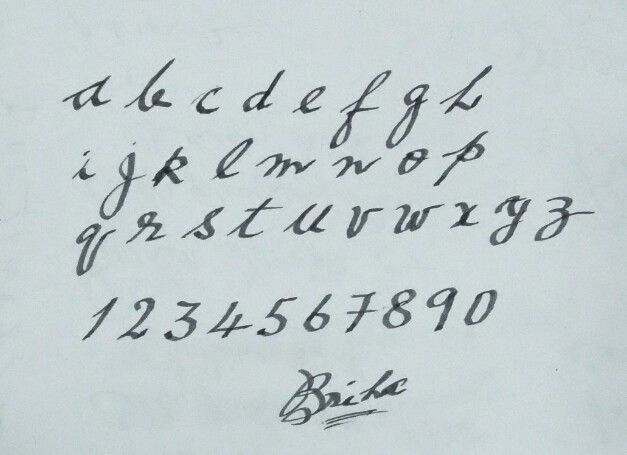 a b c d e f g h
i j k l m n o p
q r s t u v w x y z
1 2 3 4 5 6 7 8 9 0